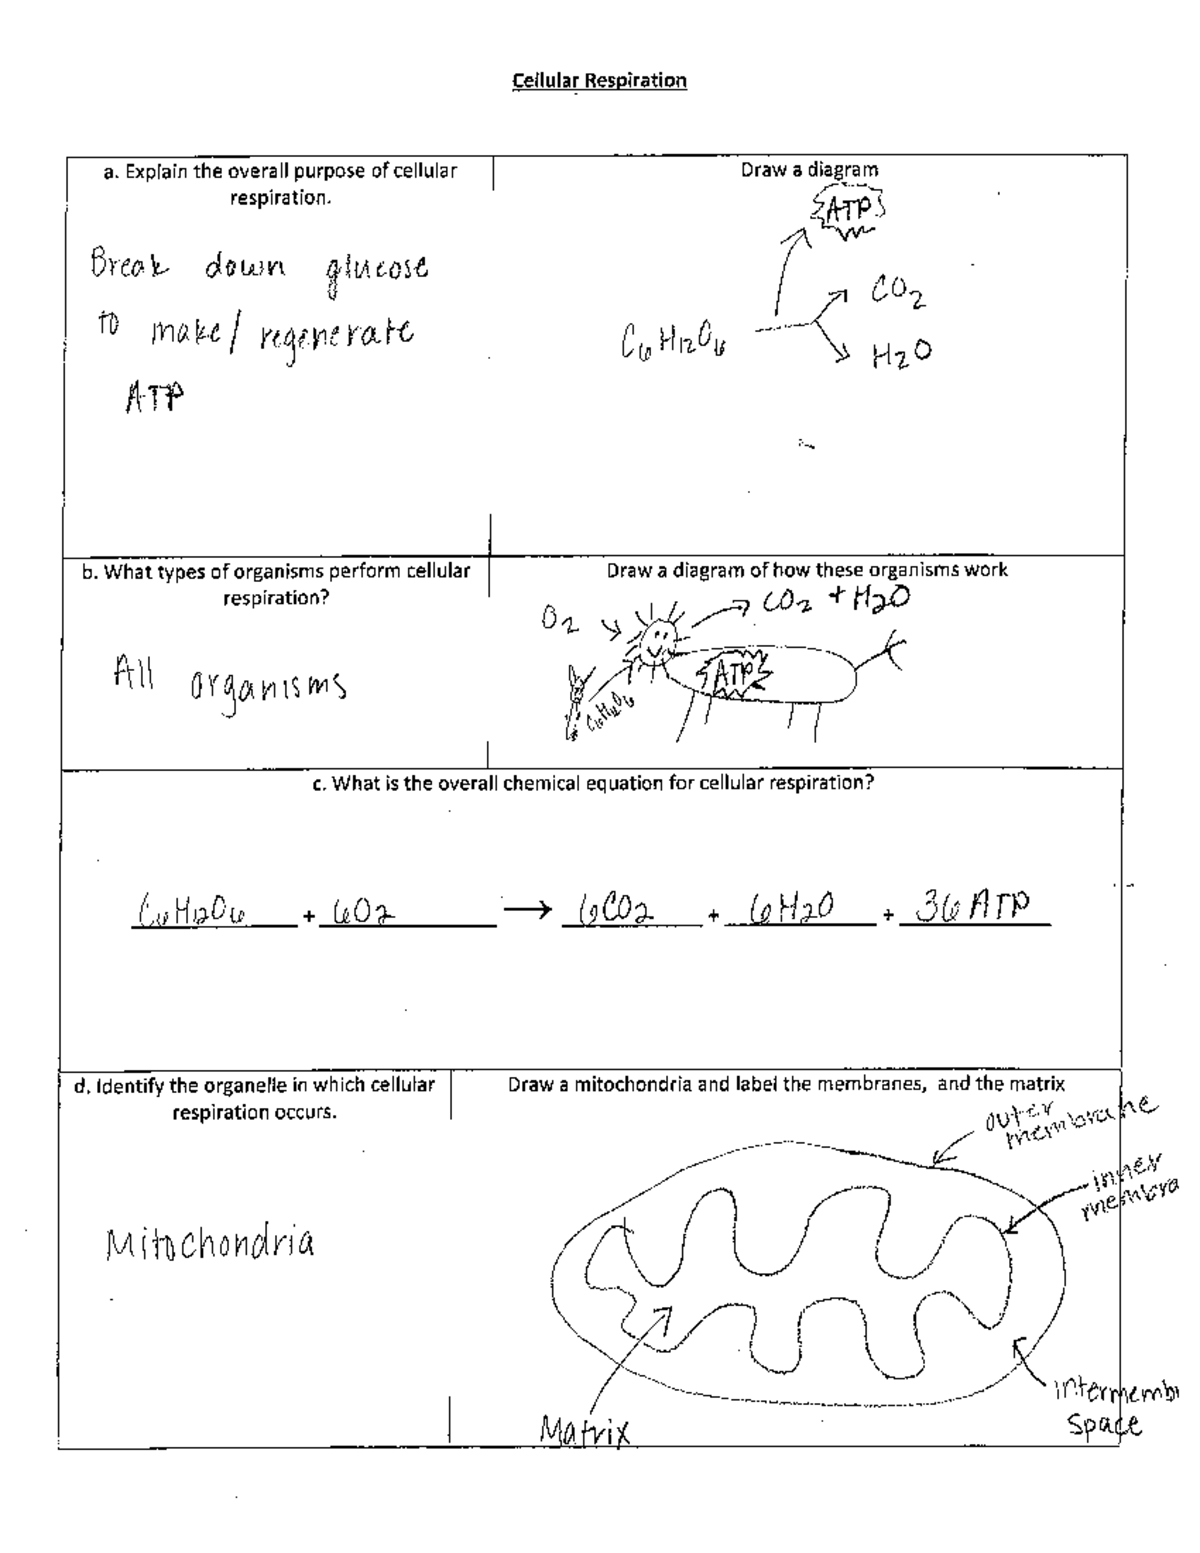 Cellular Respiration
a. Explain the overall purpose of cellular
respiration.
Break down glucose
to make/regenerate
ATP
Draw a diagram
ATP
CO2
C6H12O6
H2O
b. What types of organisms perform cellular
respiration?
All organisms
Draw a diagram of how these organisms work
O2
CO2 + H2O
ATP
C6H12O6
c. What is the overall chemical equation for cellular respiration?
C6H12O6 + 6O2 → 6CO2 + 6H2O + 36 ATP
d. Identify the organelle in which cellular
respiration occurs.
Mitochondria
Draw a mitochondria and label the membranes, and the matrix
outer
membrane
inner
membra
intermemb
space
Matrix